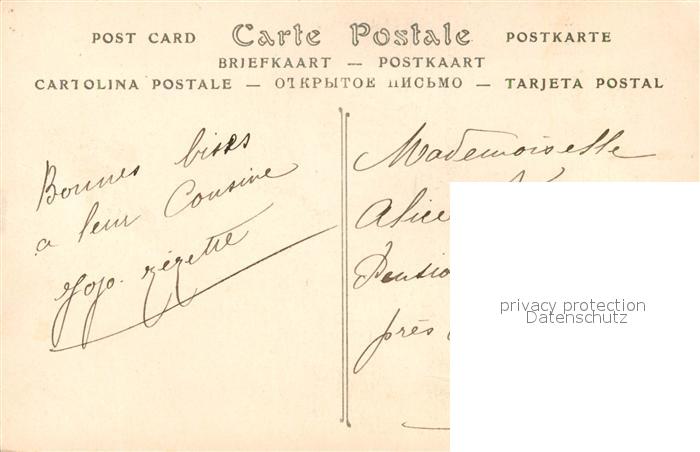 POST CARD Carte Postale POSTKARTE
BRIEFKAART — POSTKAART
CARTOLINA POSTALE — ОТКРЫТОЕ ПИСЬМО — TARJETA POSTAL
Bonnes bises
a leur Cousine
Jojo. zézette
Mademoiselle
Alice
près
privacy protection
Datenschutz